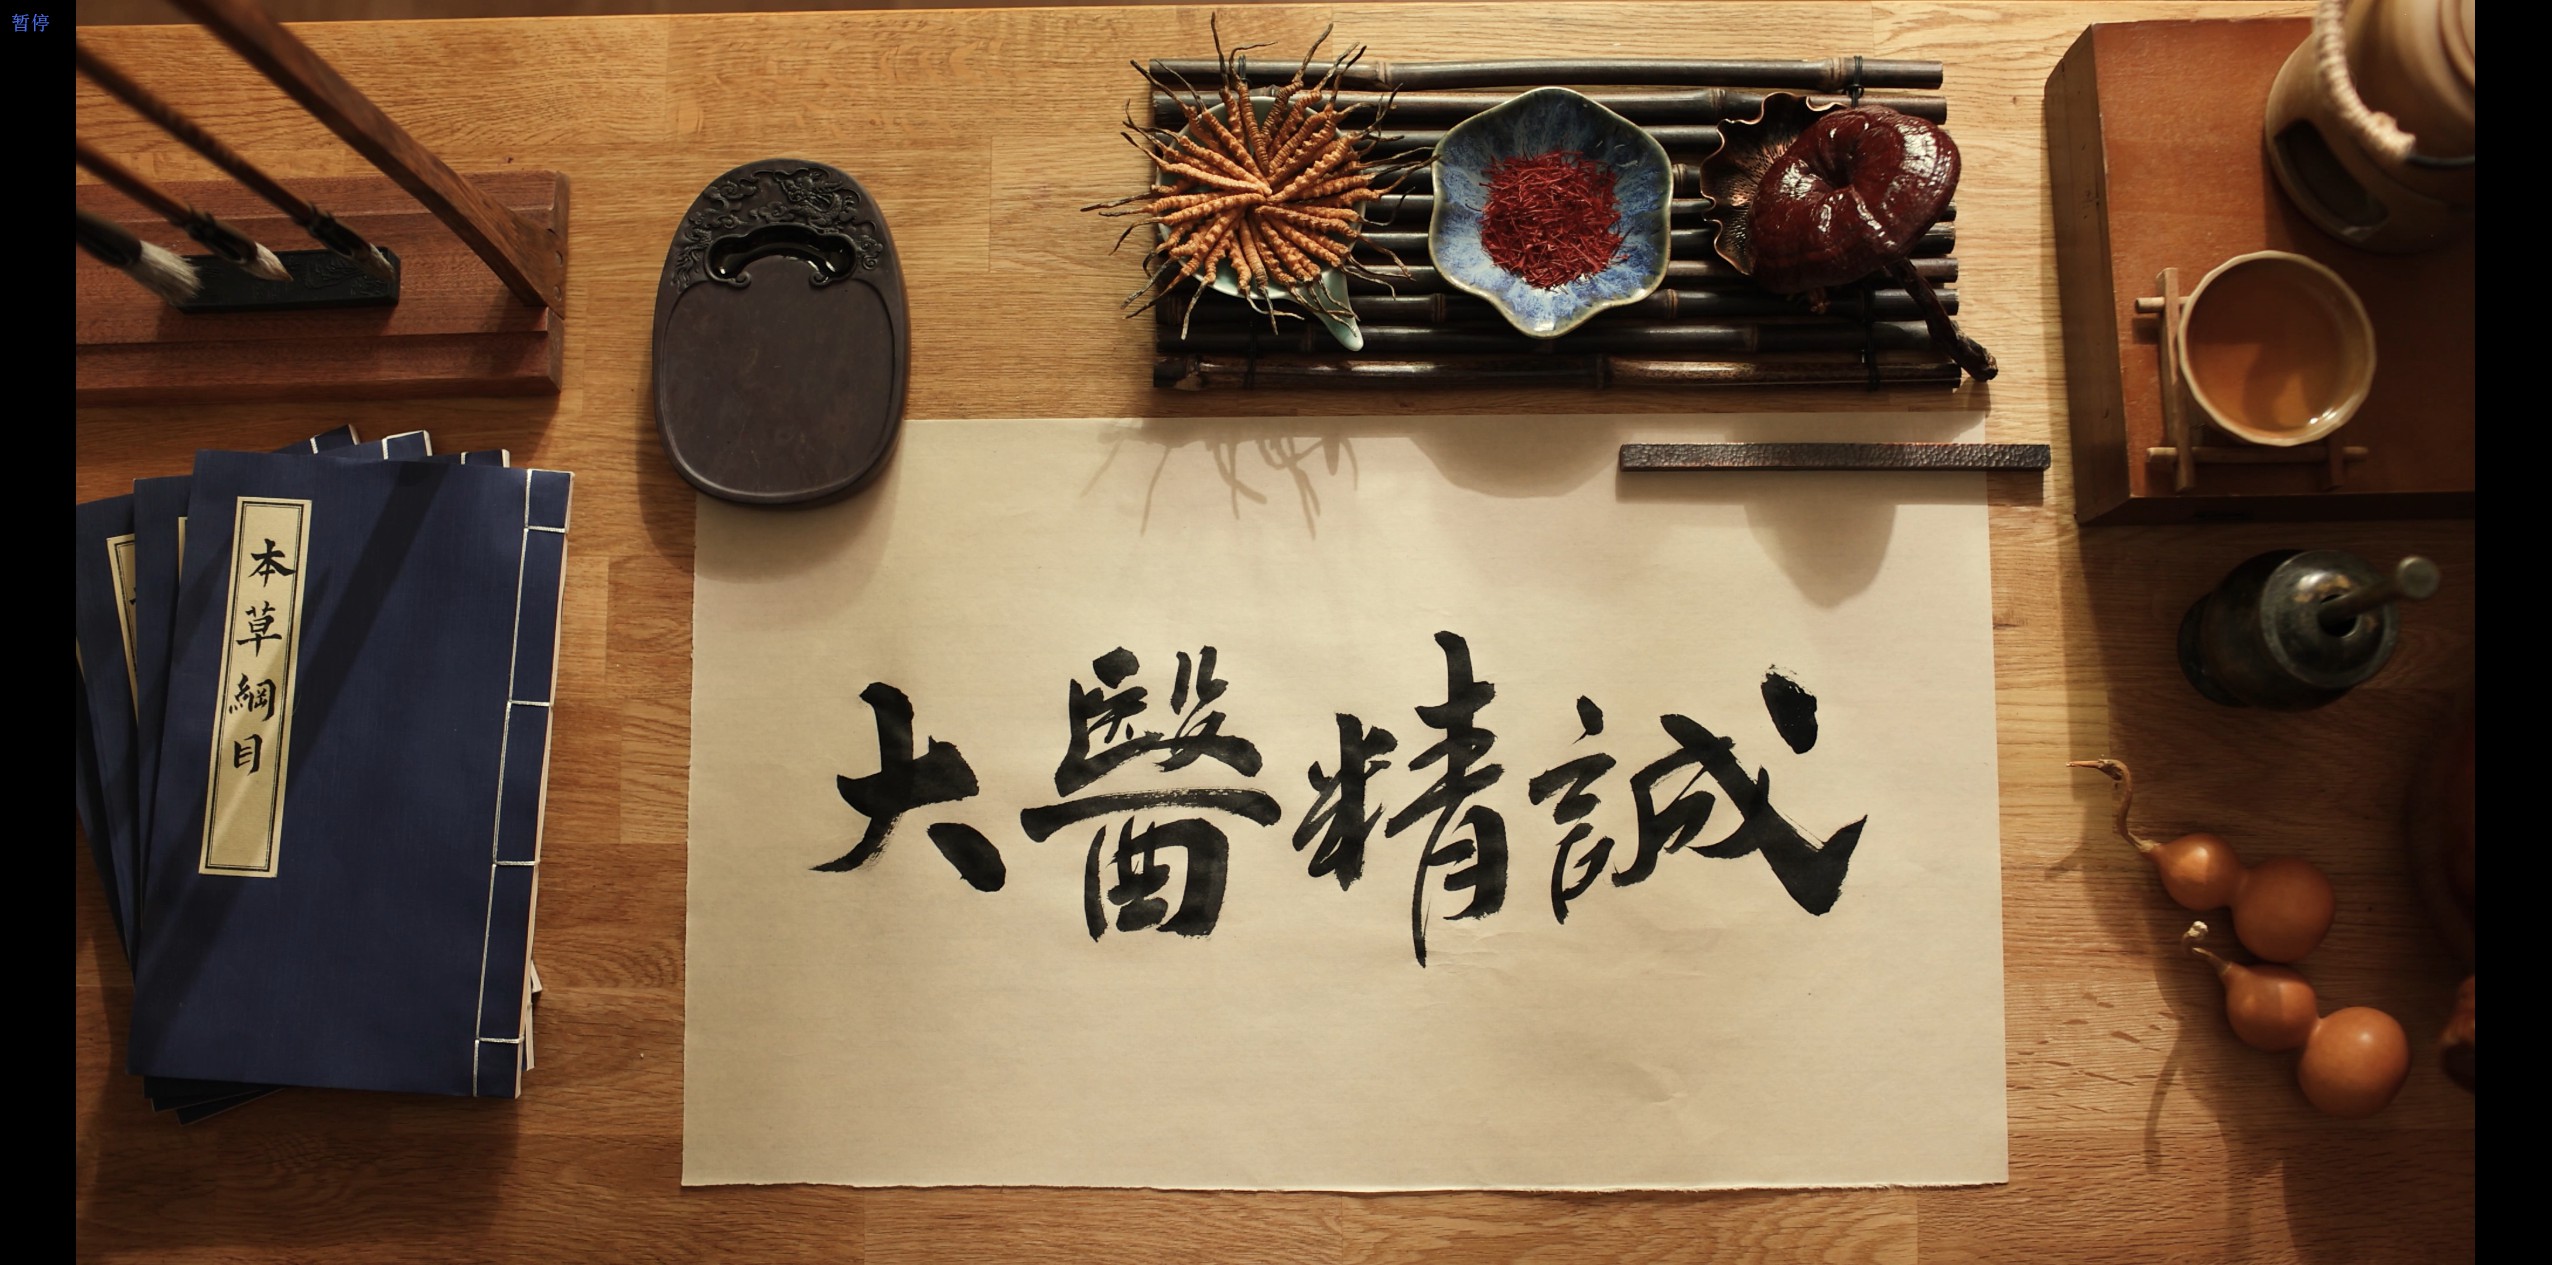 暂停
本草綱目
大醫精誠